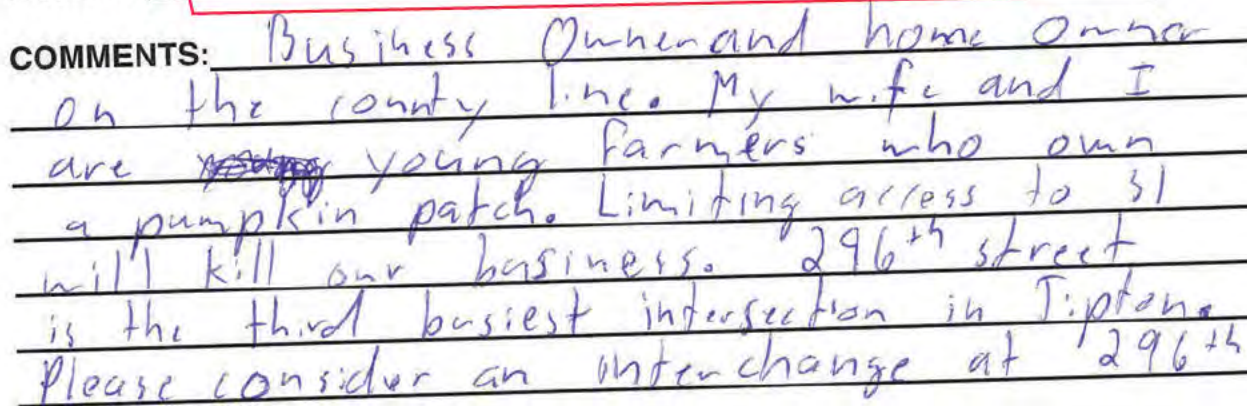 COMMENTS: Business Owner and home owner
on the county line. My wife and I
are young farmers who own
a pumpkin patch. Limiting access to 31
will kill our business. 296th street
is the third busiest intersection in Tipton.
Please consider an interchange at 296th